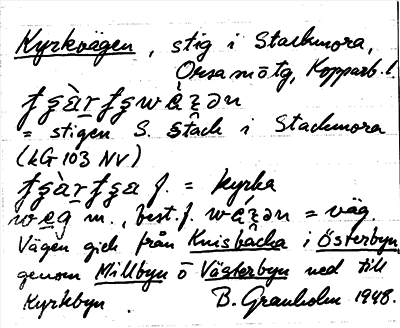 Kyrkvägen, stig i Stackmora,
Orsa måtg, Kopparb. l.
= stigen S. Stäck i Stackmora
(LG 103 NV)
f. = kyrka
m., best. f. = väg.
Vägen gick från Knisbäcka i Österbyn,
genom Millbyn o Västerbyn ned till
Kyrkbyn. B. Granholm 1948.